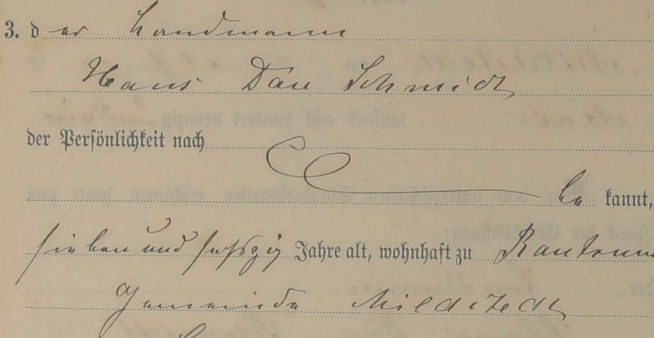 3. der Landmann
Hans Schmidt
der Persönlichkeit nach
be kannt,
sieben und sechszig Jahre alt, wohnhaft zu
Gemeinde Mildstedt